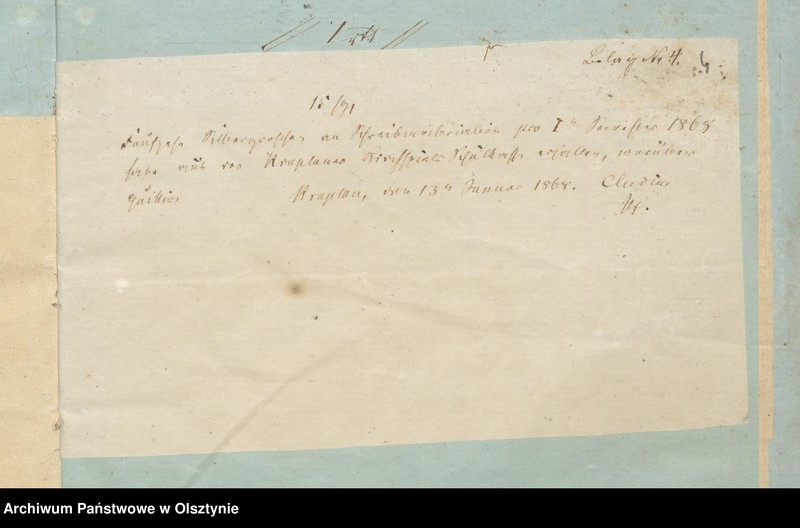 Belag No 4.
15 sg
Fünfzehn Silbergroschen an Schreibmaterialien pro I Semester 1868
habe aus der Kruplauer Kirchspiels Schulkasse erhalten, worüber
quittire
Kruplau, den 13 Januar 1868.
Archiwum Państwowe w Olsztynie